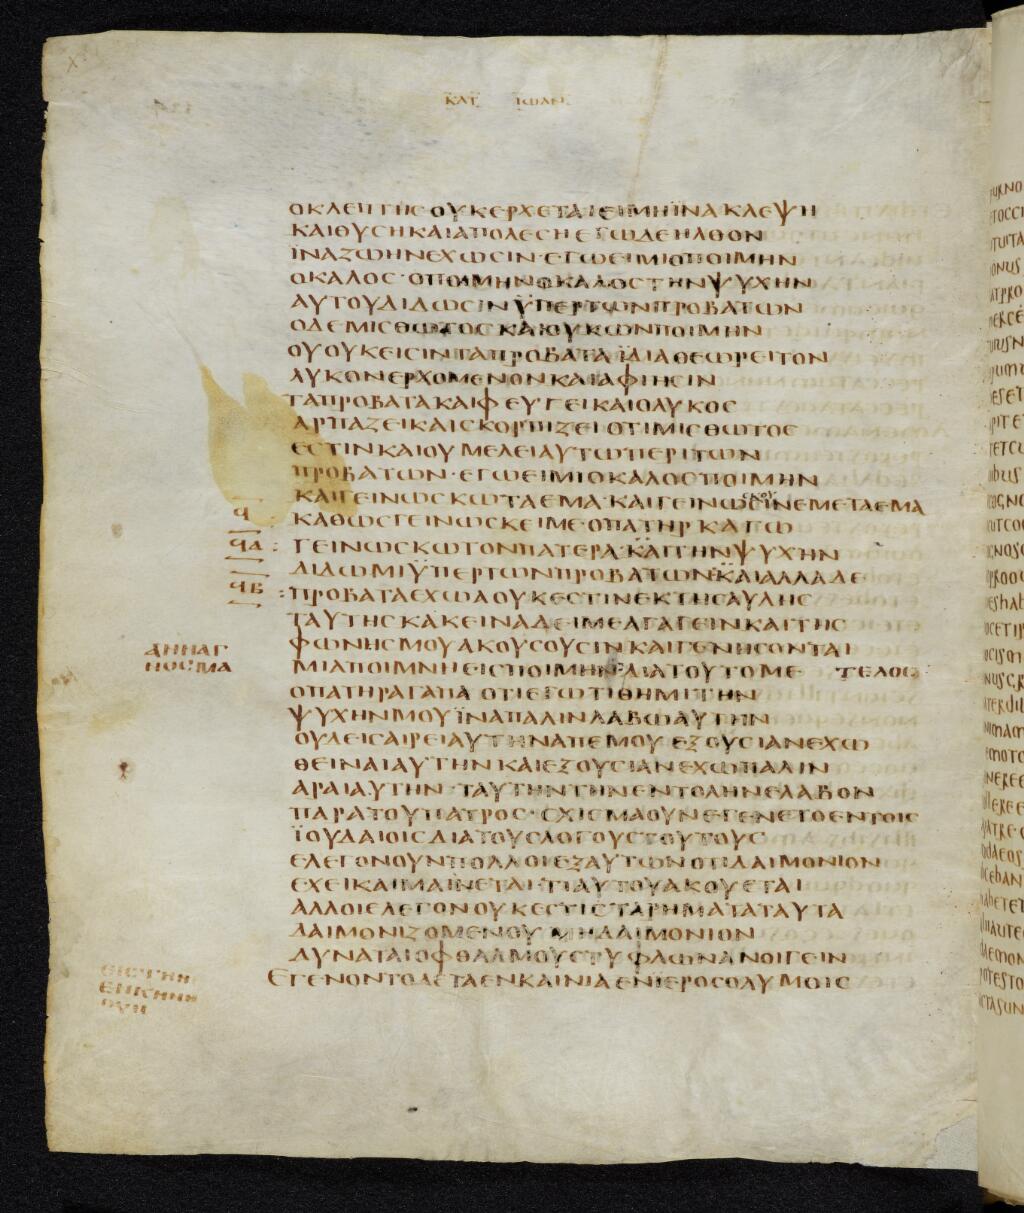 ΚΑΤ ΙΩΑΝ
ΟΚΛΕΠΤΗΣΟΥΚΕΡΧΕΤΑΙΕΙΜΗΙΝΑΚΛΕΨΗ
ΚΑΙΘΥΣΗΚΑΙΑΠΟΛΕΣΗΕΓΩΔΕΗΛΘΟΝ
ΪΝΑΖΩΗΝΕΧΩΣΙΝ·ΕΓΩΕΙΜΙΟΠΟΙΜΗΝ
ΟΚΑΛΟΣ·ΟΠΟΙΜΗΝΟΚΑΛΟΣΤΗΝΨΥΧΗΝ
ΑΥΤΟΥΔΙΔΩΣΙΝΫΠΕΡΤΩΝΠΡΟΒΑΤΩΝ
ΟΔΕΜΙΣΘΩΤΟΣΚΑΙΟΥΚΩΝΠΟΙΜΗΝ
ΟΥΟΥΚΕΙΣΙΝΤΑΠΡΟΒΑΤΑΪΔΙΑΘΕΩΡΕΙΤΟΝ
ΛΥΚΟΝΕΡΧΟΜΕΝΟΝΚΑΙΑΦΙΗΣΙΝ
ΤΑΠΡΟΒΑΤΑΚΑΙΦΕΥΓΕΙΚΑΙΟΛΥΚΟΣ
ΑΡΠΑΖΕΙΚΑΙΣΚΟΡΠΙΖΕΙΟΤΙΜΙΣΘΩΤΟΣ
ΕΣΤΙΝΚΑΙΟΥΜΕΛΕΙΑΥΤΩΠΕΡΙΤΩΝ
ΠΡΟΒΑΤΩΝ·ΕΓΩΕΙΜΙΟΚΑΛΟΣΠΟΙΜΗΝ
ΚΑΙΓΕΙΝΩΣΚΩΤΑΕΜΑ·ΚΑΙΓΕΙΝΩΣΚΙΝΕΜΕΤΑΕΜΑ
Ϥ ΚΑΘΩΣΓΕΙΝΩΣΚΕΙΜΕΟΠΑΤΗΡΚΑΓΩ
ϤΑ : ΓΕΙΝΩΣΚΩΤΟΝΠΑΤΕΡΑ·ΚΑΙΤΗΝΨΥΧΗΝ
ΔΙΔΩΜΙΫΠΕΡΤΩΝΠΡΟΒΑΤΩΝΚΑΙΑΛΛΑΔΕ
ϤΒ : ΠΡΟΒΑΤΑΕΧΩΑΟΥΚΕΣΤΙΝΕΚΤΗΣΑΥΛΗΣ
ΤΑΥΤΗΣΚΑΚΕΙΝΑΔΕΙΜΕΑΓΑΓΕΙΝΚΑΙΤΗΣ
ΑΝΝΑΓ ΦΩΝΗΣΜΟΥΑΚΟΥΣΟΥΣΙΝΚΑΙΓΕΝΗΣΟΝΤΑΙ
ΝΟΣΜΑ ΜΙΑΠΟΙΜΝΗΕΙΣΠΟΙΜΗΝΔΙΑΤΟΥΤΟΜΕ ΤΕΛΟΣ
ΟΠΑΤΗΡΑΓΑΠΑ·ΟΤΙΕΓΩΤΙΘΗΜΙΤΗΝ
ΨΥΧΗΝΜΟΥΪΝΑΠΑΛΙΝΛΑΒΩΑΥΤΗΝ
ΟΥΔΕΙΣΑΙΡΕΙΑΥΤΗΝΑΠΕΜΟΥ·ΕΞΟΥΣΙΑΝΕΧΩ
ΘΕΙΝΑΙΑΥΤΗΝΚΑΙΕΞΟΥΣΙΑΝΕΧΩΠΑΛΙΝ
ΑΡΑΙΑΥΤΗΝ·ΤΑΥΤΗΝΤΗΝΕΝΤΟΛΗΝΕΛΑΒΟΝ
ΠΑΡΑΤΟΥΠΑΤΡΟΣ·ΣΧΙΣΜΑΟΥΝΕΓΕΝΕΤΟΕΝΤΟΙΣ
ΪΟΥΔΑΙΟΙΣΔΙΑΤΟΥΣΛΟΓΟΥΣΤΟΥΤΟΥΣ
ΕΛΕΓΟΝΟΥΝΠΟΛΛΟΙΕΞΑΥΤΩΝΟΤΙΔΑΙΜΟΝΙΟΝ
ΕΧΕΙΚΑΙΜΑΙΝΕΤΑΙ·ΤΙΑΥΤΟΥΑΚΟΥΕΤΑΙ
ΑΛΛΟΙΕΛΕΓΟΝΟΥΚΕΣΤΙΣΤΑΡΗΜΑΤΑΤΑΥΤΑ
ΔΑΙΜΟΝΙΖΟΜΕΝΟΥΜΗΔΑΙΜΟΝΙΟΝ
ΔΥΝΑΤΑΙΟΦΘΑΛΜΟΥΣΤΥΦΛΩΝΑΝΟΙΓΕΙΝ
ΕΓΕΝΟΝΤΟΔΕΤΑΕΝΚΑΙΝΙΑΕΝΙΕΡΟΣΟΛΥΜΟΙΣ
ΕΙΣΤΗΝ
ΕΝΚΕΝΗΝ